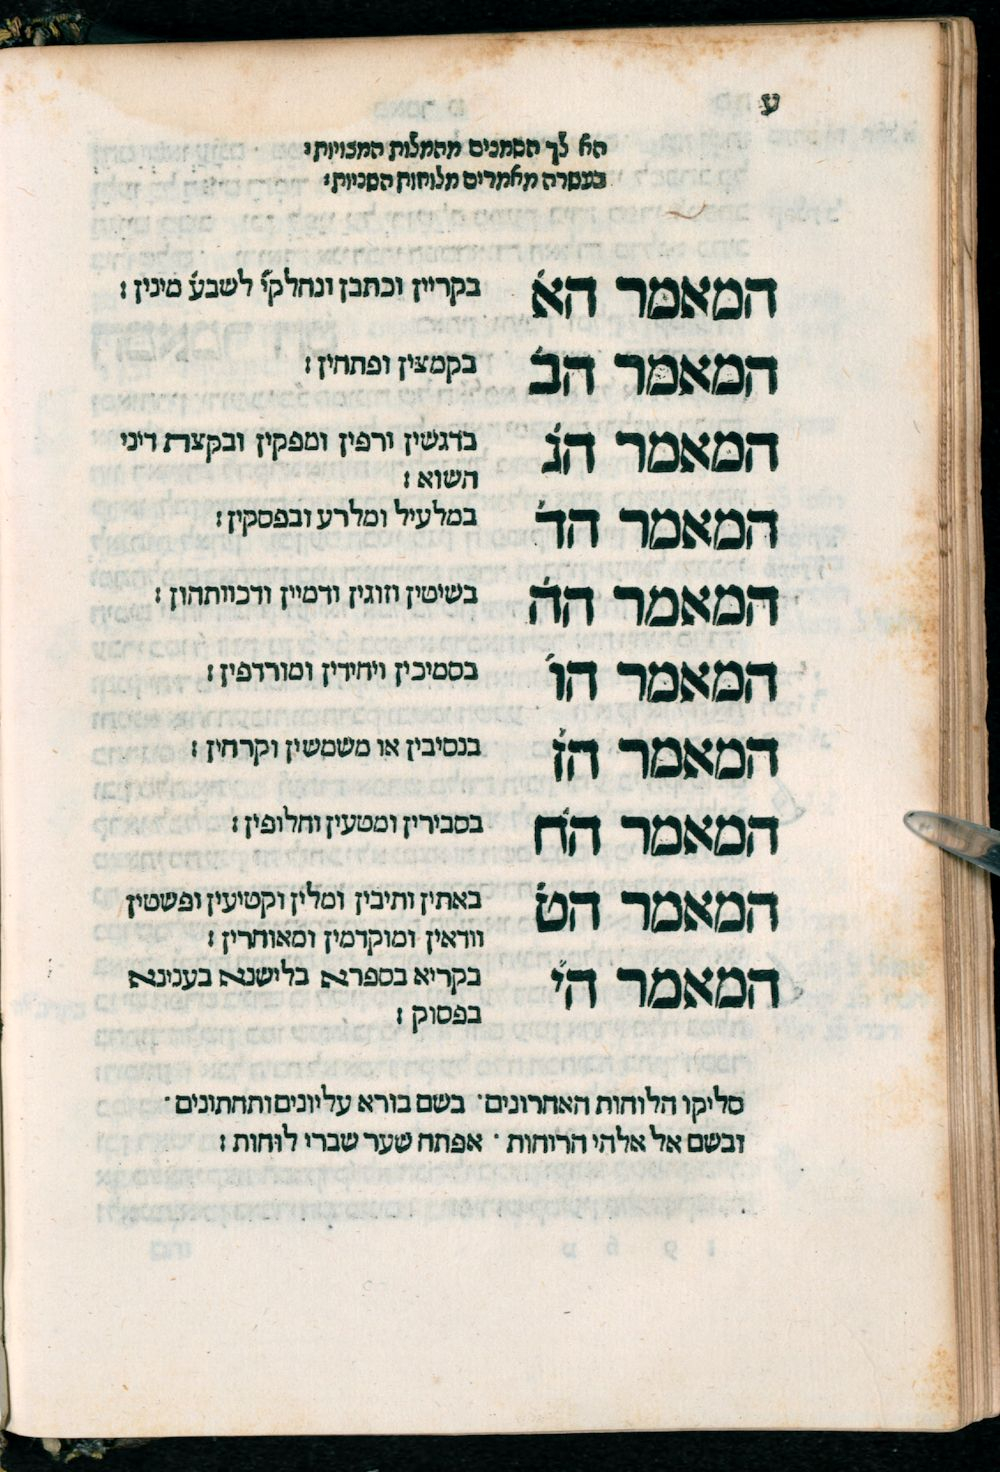 ע
הא לך הסמנים מהמלות המצויות:
בעשרה מאמרים מלוחות השניות:
המאמר הא׳ בקריין וכתבן ונחלקי׳ לשבע׳ מינין:
המאמר הב׳ בקמצין ופתחין:
המאמר הג׳ בדגשין ורפין ומפקין ובקצרת דיני
השוא:
המאמר הד׳ במלעיל ומלרע ובפסקין:
המאמר הה׳ בשיטין וזוגין ודמיין ודכוותהון:
המאמר הו׳ בסמיכין ויחידין ומורדפין:
המאמר הז׳ בנסיבין או משמשין וקרחין:
המאמר הח׳ בסבירין ומטעין וחלופין:
המאמר הט׳ באתין ותיבין ומלין וקטיעין ופשטין
וודאין ומוקדמין ומאוחרין:
המאמר הי׳ בקריא בספרא בלישנא בענינא
בפסוק:
סליקו הלוחות האחרונים· בשם בורא עליונים ותחתונים·
ובשם אל אלהי הרוחות· אפתח שער שברי לוחות: